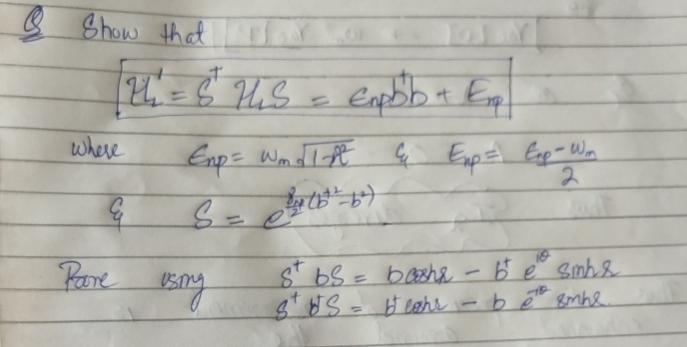 Q Show that
H₁' = S† H₁ S = ϵnp b†b + Enp
where ϵnp = ωm √(1-λ²) & Enp = (ϵnp - ωm)/2
& S = e^{(rnp/2)(b†² - b²)}
Prove using S† b S = b coshr - b† e^{iθ} sinhr
S† b† S = b† coshr - b e^{-iθ} sinhr.